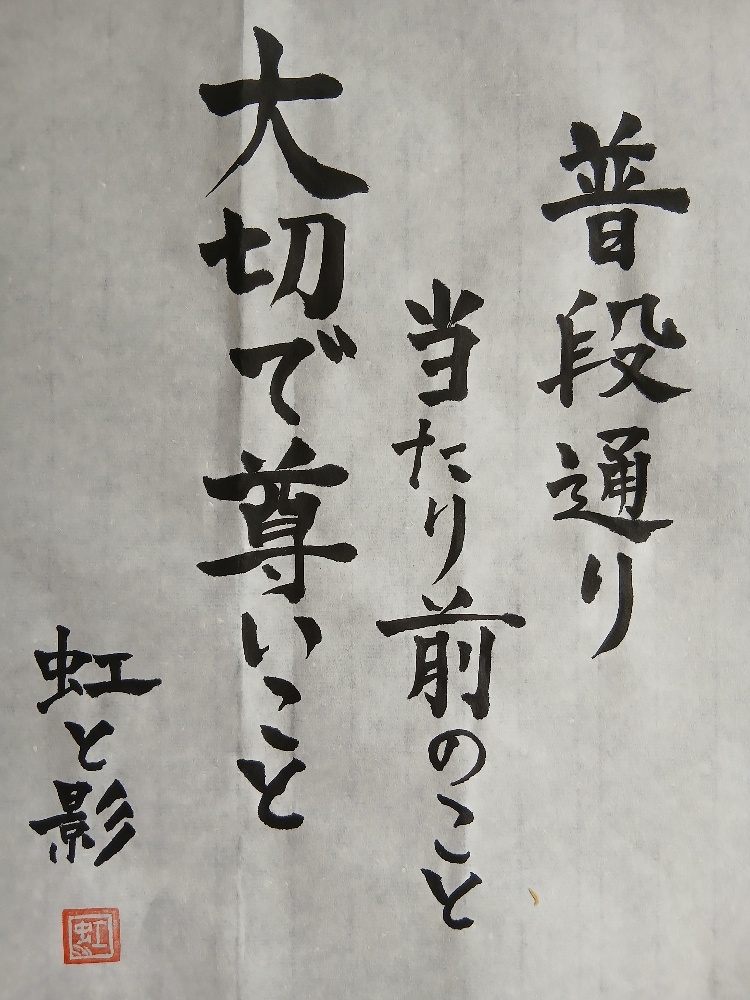 普段通り
当たり前のこと
大切で尊いこと
虹と影
虹